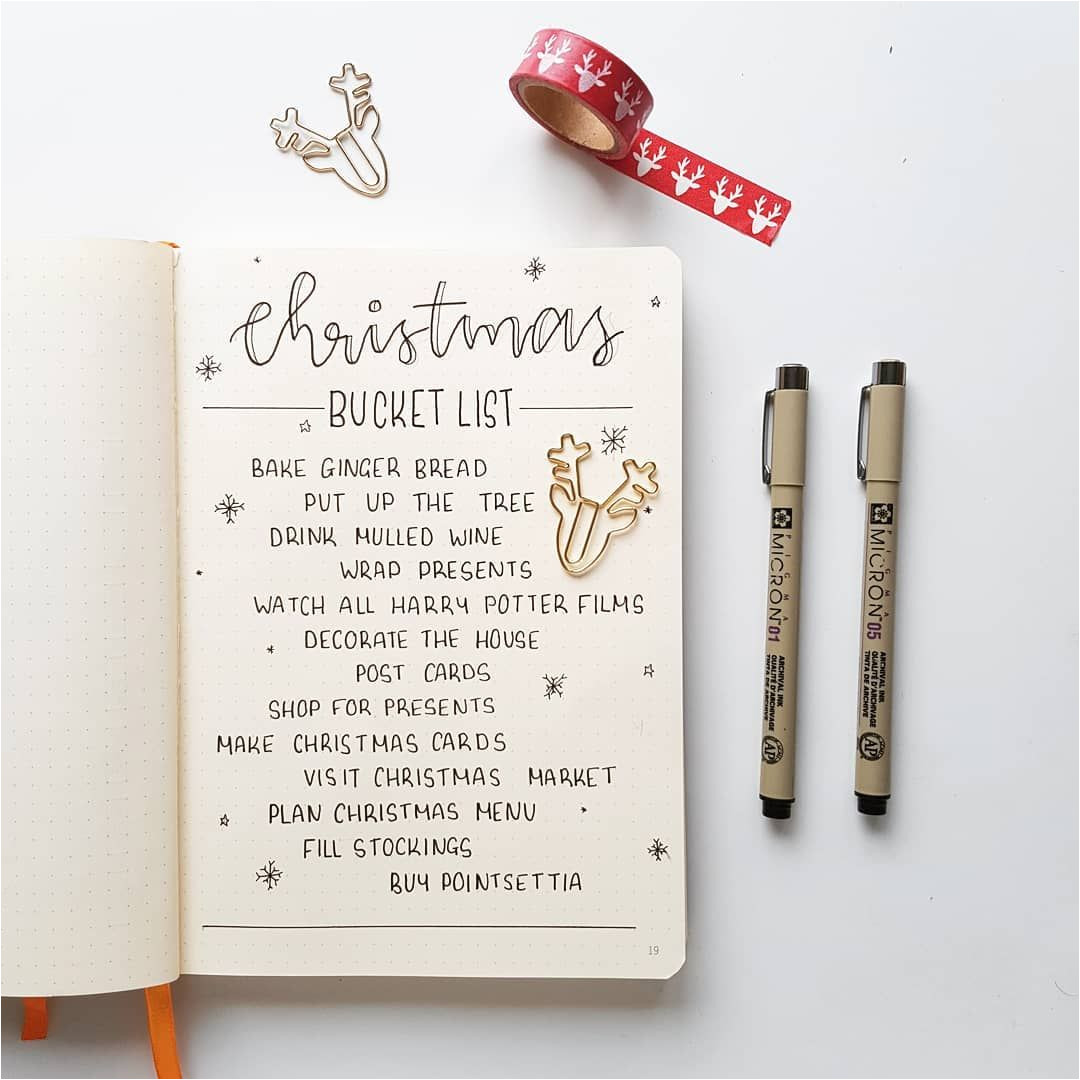 christmas
BUCKET LIST
BAKE GINGER BREAD
PUT UP THE TREE
DRINK MULLED WINE
WRAP PRESENTS
WATCH ALL HARRY POTTER FILMS
DECORATE THE HOUSE
POST CARDS
SHOP FOR PRESENTS
MAKE CHRISTMAS CARDS
VISIT CHRISTMAS MARKET
PLAN CHRISTMAS MENU
FILL STOCKINGS
BUY POINTSETTIA
19
PIGMA
MICRON 01
ARCHIVAL INK
QUALITÉ D'ARCHIVAGE
TINTA DE ARCHIVE
AP
PIGMA
MICRON 05
ARCHIVAL INK
QUALITÉ D'ARCHIVAGE
TINTA DE ARCHIVE
AP